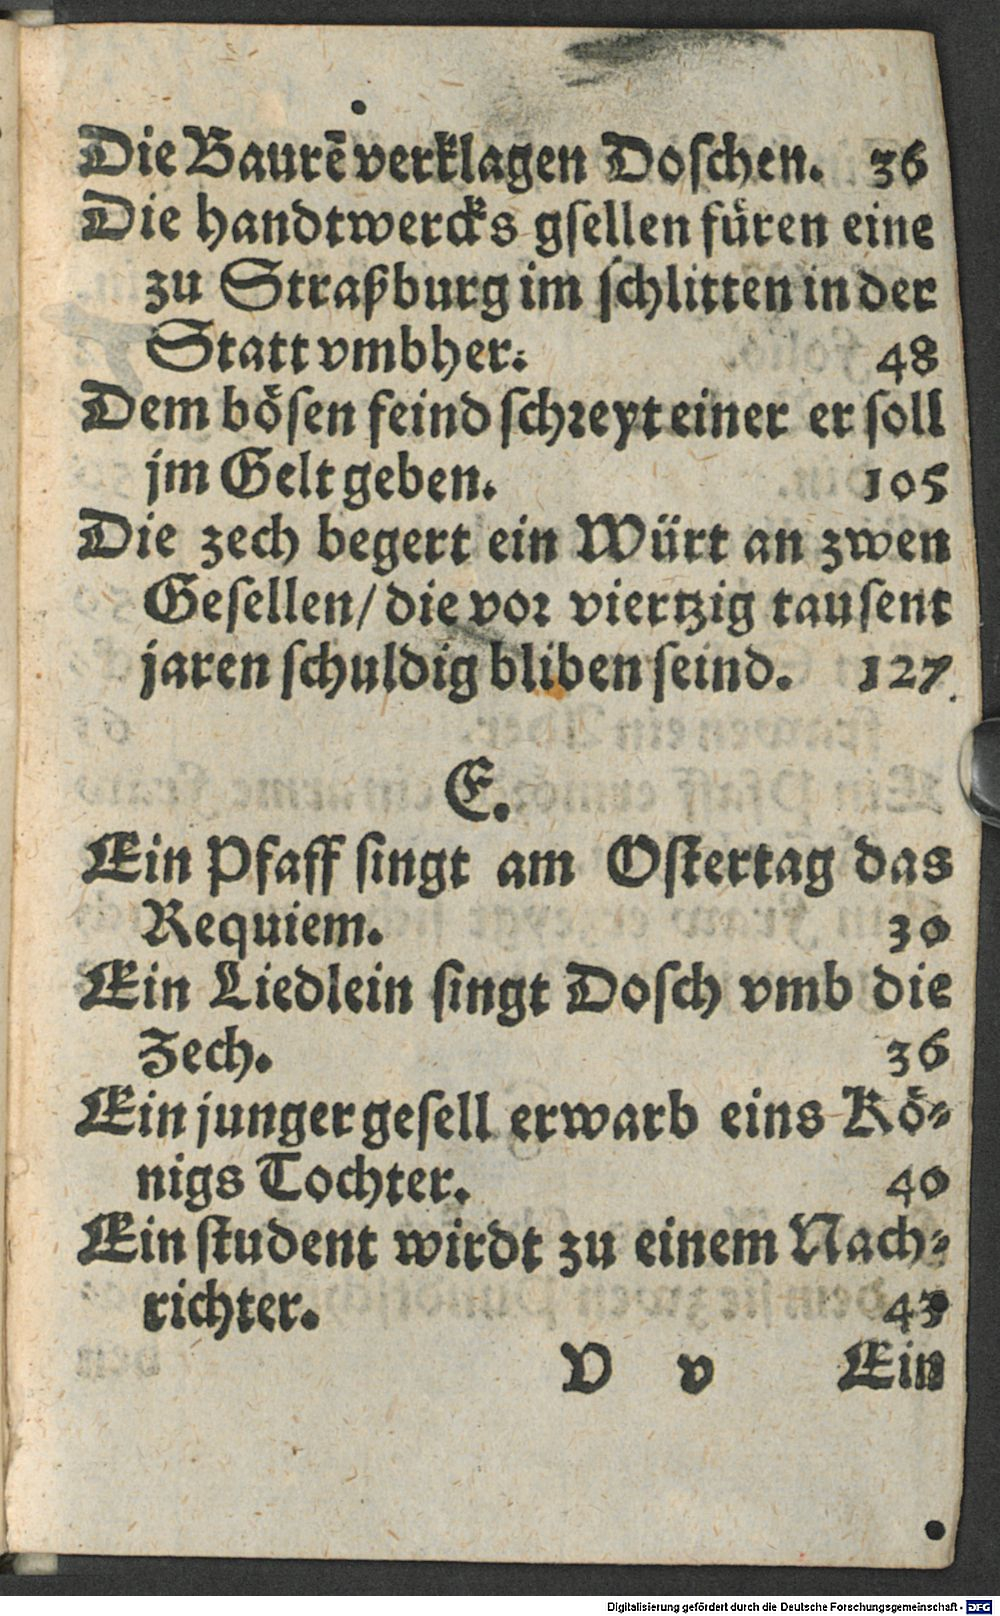 Die Baurẽ verklagen Doschen. 36
Die handtwercks gsellen füren eine
zu Straßburg im schlitten in der
Statt vmbher. 48
Dem bösen feind schreyt einer er soll
jm Gelt geben. 105
Die zech begert ein Würt an zwen
Gesellen/ die vor viertzig tausent
jaren schuldig bliben seind. 127
E.
Ein Pfaff singt am Ostertag das
Requiem. 30
Ein Liedlein singt Dosch vmb die
Zech. 36
Ein junger gesell erwarb eins Kö⸗
nigs Tochter. 40
Ein student wirdt zu einem Nach⸗
richter. 43
V v Ein
Digitalisierung gefördert durch die Deutsche Forschungsgemeinschaft - DFG